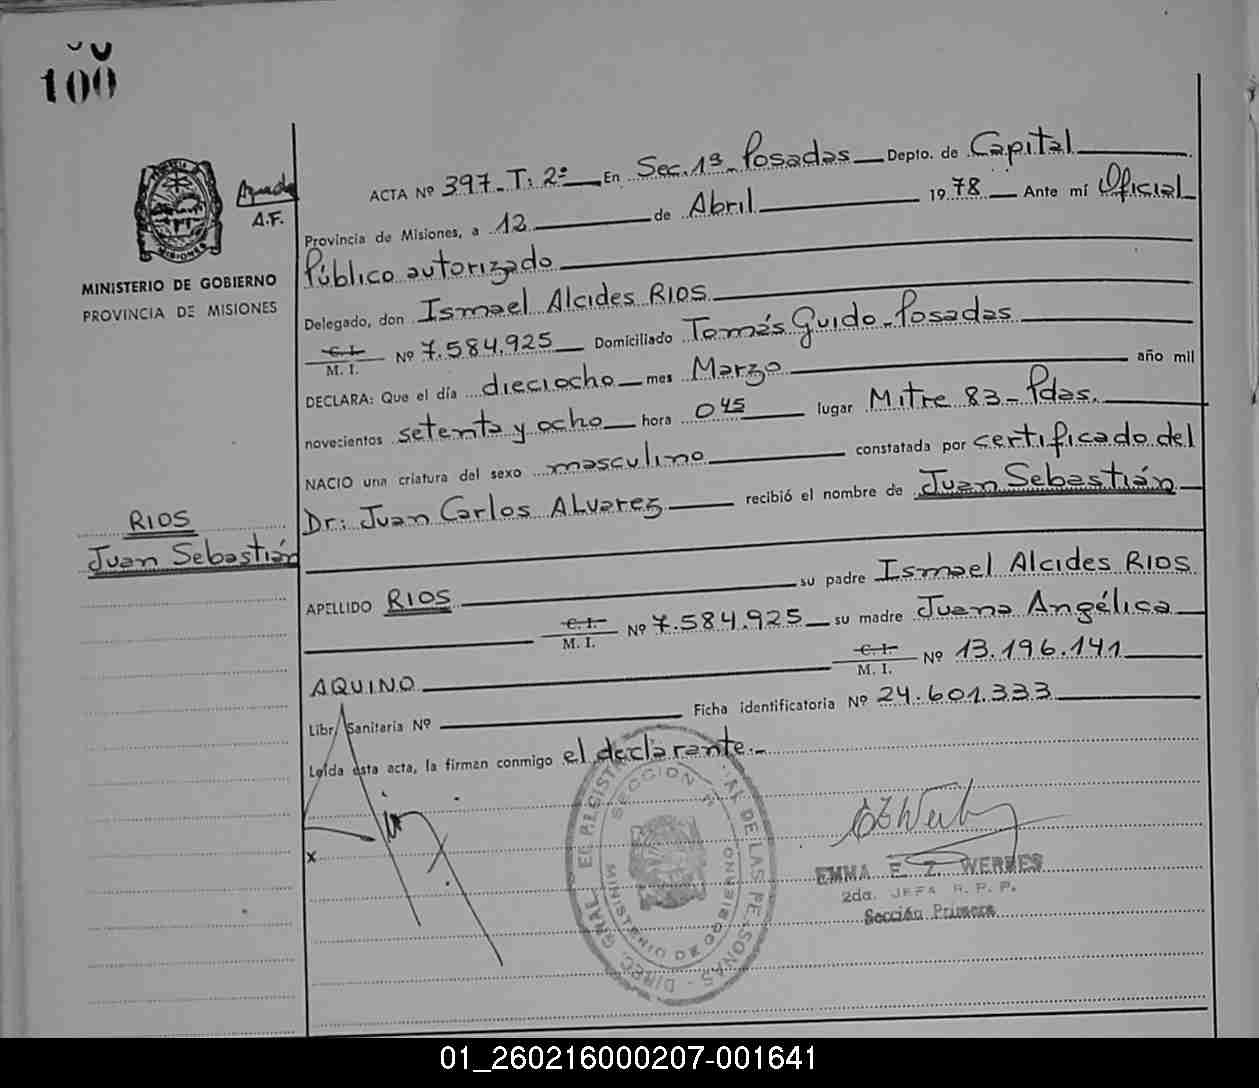 100
A.F.
MINISTERIO DE GOBIERNO
PROVINCIA DE MISIONES
RIOS
Juan Sebastián
ACTA Nº 397. T: 2º En Sec. 1ª Posadas Depto. de Capital
Provincia de Misiones, a 12 de Abril 1978 Ante mí Oficial
Público autorizado
Delegado, don Ismael Alcides RIOS
C.I. M. I. Nº 7.584.925 Domiciliado Tomás Guido - Posadas
DECLARA: Que el día dieciocho mes Marzo año mil
novecientos setenta y ocho hora 0 45 lugar Mitre 83 - Pdas.
NACIO una criatura del sexo masculino constatada por certificado del
Dr: Juan Carlos ALvarez recibió el nombre de Juan Sebastián
APELLIDO RIOS su padre Ismael Alcides RIOS
C.I. M. I. Nº 7.584.925 su madre Juana Angélica
AQUINO C.I. M. I. Nº 13.196.141
Libr Sanitaria Nº Ficha identificatoria Nº 24.601.333
Leída esta acta, la firman conmigo el declarante.-
x
EMMA E. Z. WERBES
2da. JEFA R. P. P.
Sección Primera
SECCION
MINISTERIO DE GOBIERNO
01_260216000207-001641